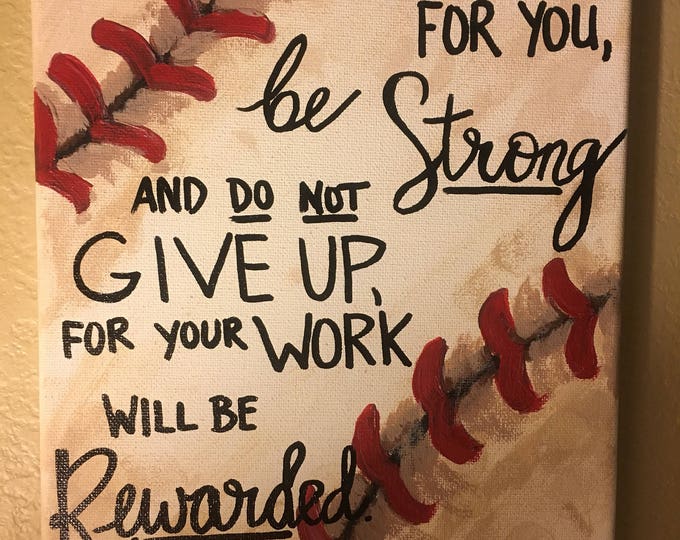 FOR YOU,
be Strong
AND DO NOT
GIVE UP,
FOR YOUR WORK
WILL BE
Rewarded.